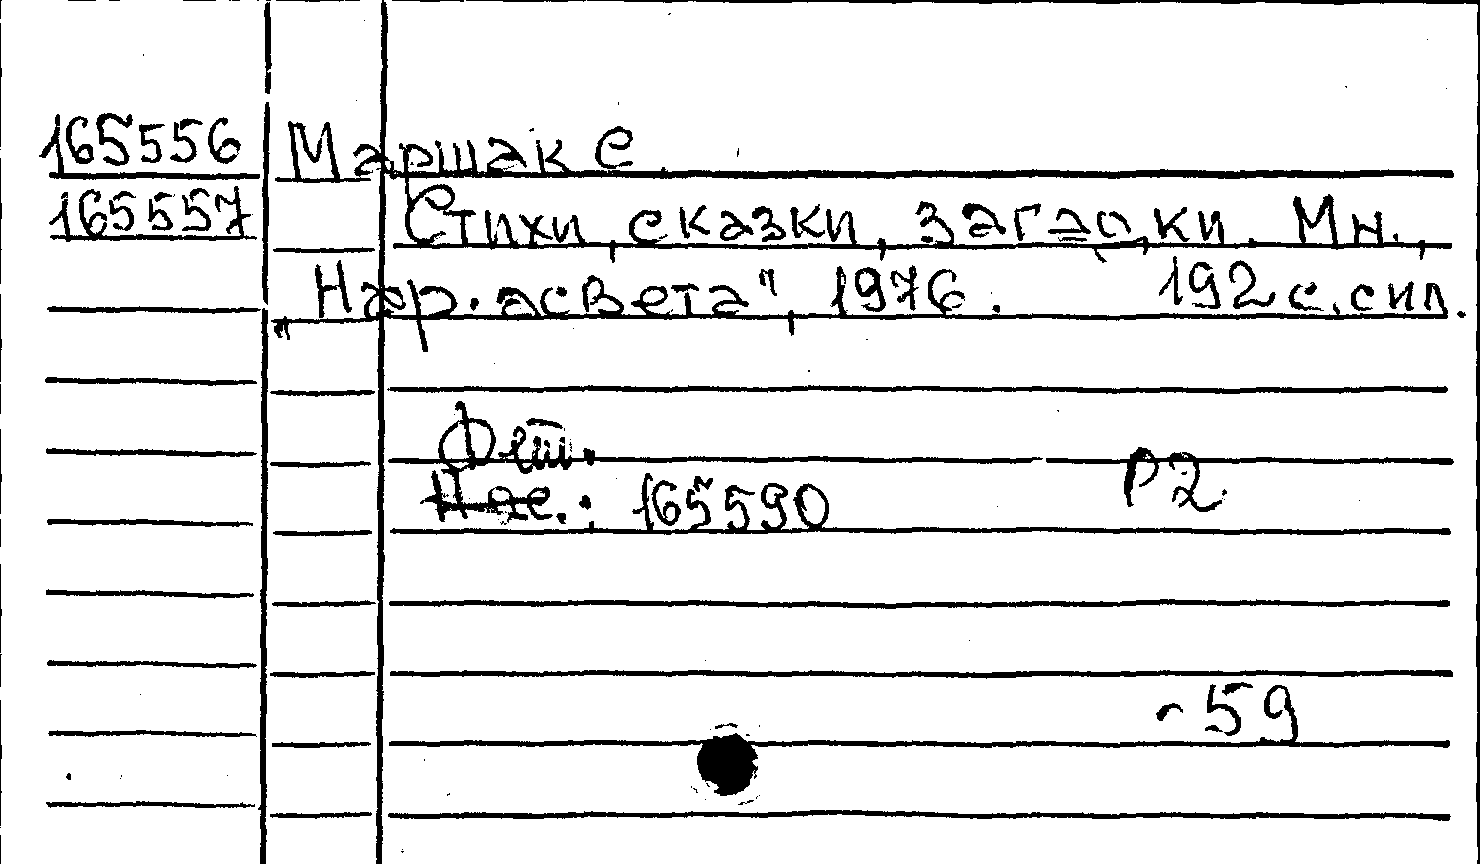 165556 Маршак С.
165557 Стихи, сказки, загадки. Мн.,
„Нар. асвета", 1976. 192 с. с ил.
165590 Р2
-59